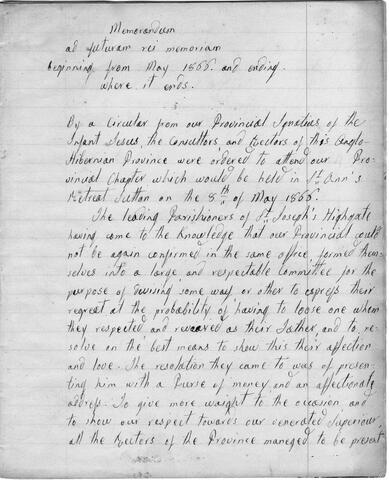 Memorandum
ad futuram rei memoriam
beginning from May 1866. and ending
where it ends.
By a Circular from our Provincial Ignatius of the
Infant Jesus, the Consultors and Rectors of this Anglo-
Hibernian Province were ordered to attend our Pro-
vincial Chapter which would be held in St. Ann's
Retreat Sutton on the 8th of May 1866.
The leading Parishioners of St. Joseph's Highgate
having come to the Knowledge that our Provincial could
not be again confirmed in the same office, formed them-
selves into a large and respectable Committee for the
purpose of devising some way or other to express their
regret at the probability of having to loose one whom
they respected and revered as their Father, and to re-
solve on the best means to show this their affection
and love. The resolation they came to was of presen-
ting him with a Purse of money and an affectionate
address. To give more waight to the occasion and
to show our respect towards our venerated Superiour,
all the Rectors of the Province managed to be present